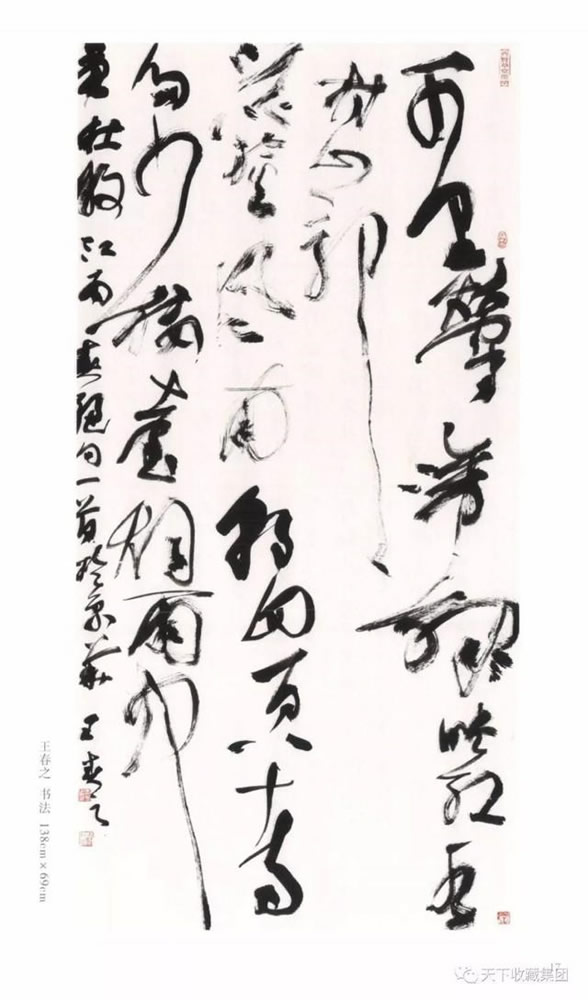 千里鶯啼綠映紅水
村山郭
酒旗風南朝四百八十寺
多少樓臺煙雨中
杜牧江南春絕句一首於京華 王春之
王春之 书法 138cm×69cm
17
天下收藏集团